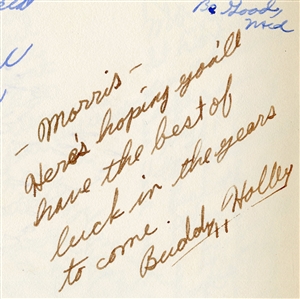 Be Good,
Ned
- Morris -
Here's hoping you'll
have the best of
luck in the years
to come.
Buddy Holley